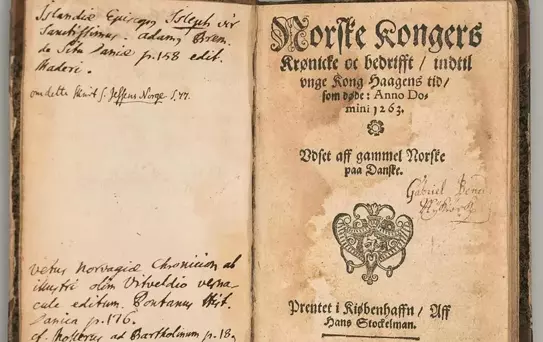 Islandiæ Episcop. Isleph vir
Sanctissimus. adam. Brem.
de Situ Daniæ p. 158 edit.
Maderi.
om dette skrift s. Jessens Norge S. 44.
vetus Norvagiæ Chronicion ab
illustri olim Vitveldio verna-
cule editum. Pontanus Hist.
Danica p. 176.
cf. Mollerus ad Bartholinum p. 18.
Norske Kongers
Krønicke oc bedrifft / indtil
vnge Kong Haagens tid /
som døde: Anno Do-
mini 1263.
Vdset aff gammel Norske
paa Danske.
Gabriel
Prentet i Kiøbenhaffn / Aff
Hans Stockelman.